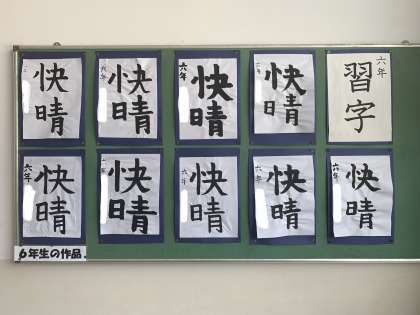 快晴
六年
快晴
六年
快晴
六年
快晴
習字
六年
快晴
六年
快晴
快晴
六年
快晴
六年
快晴
六年
6年生の作品